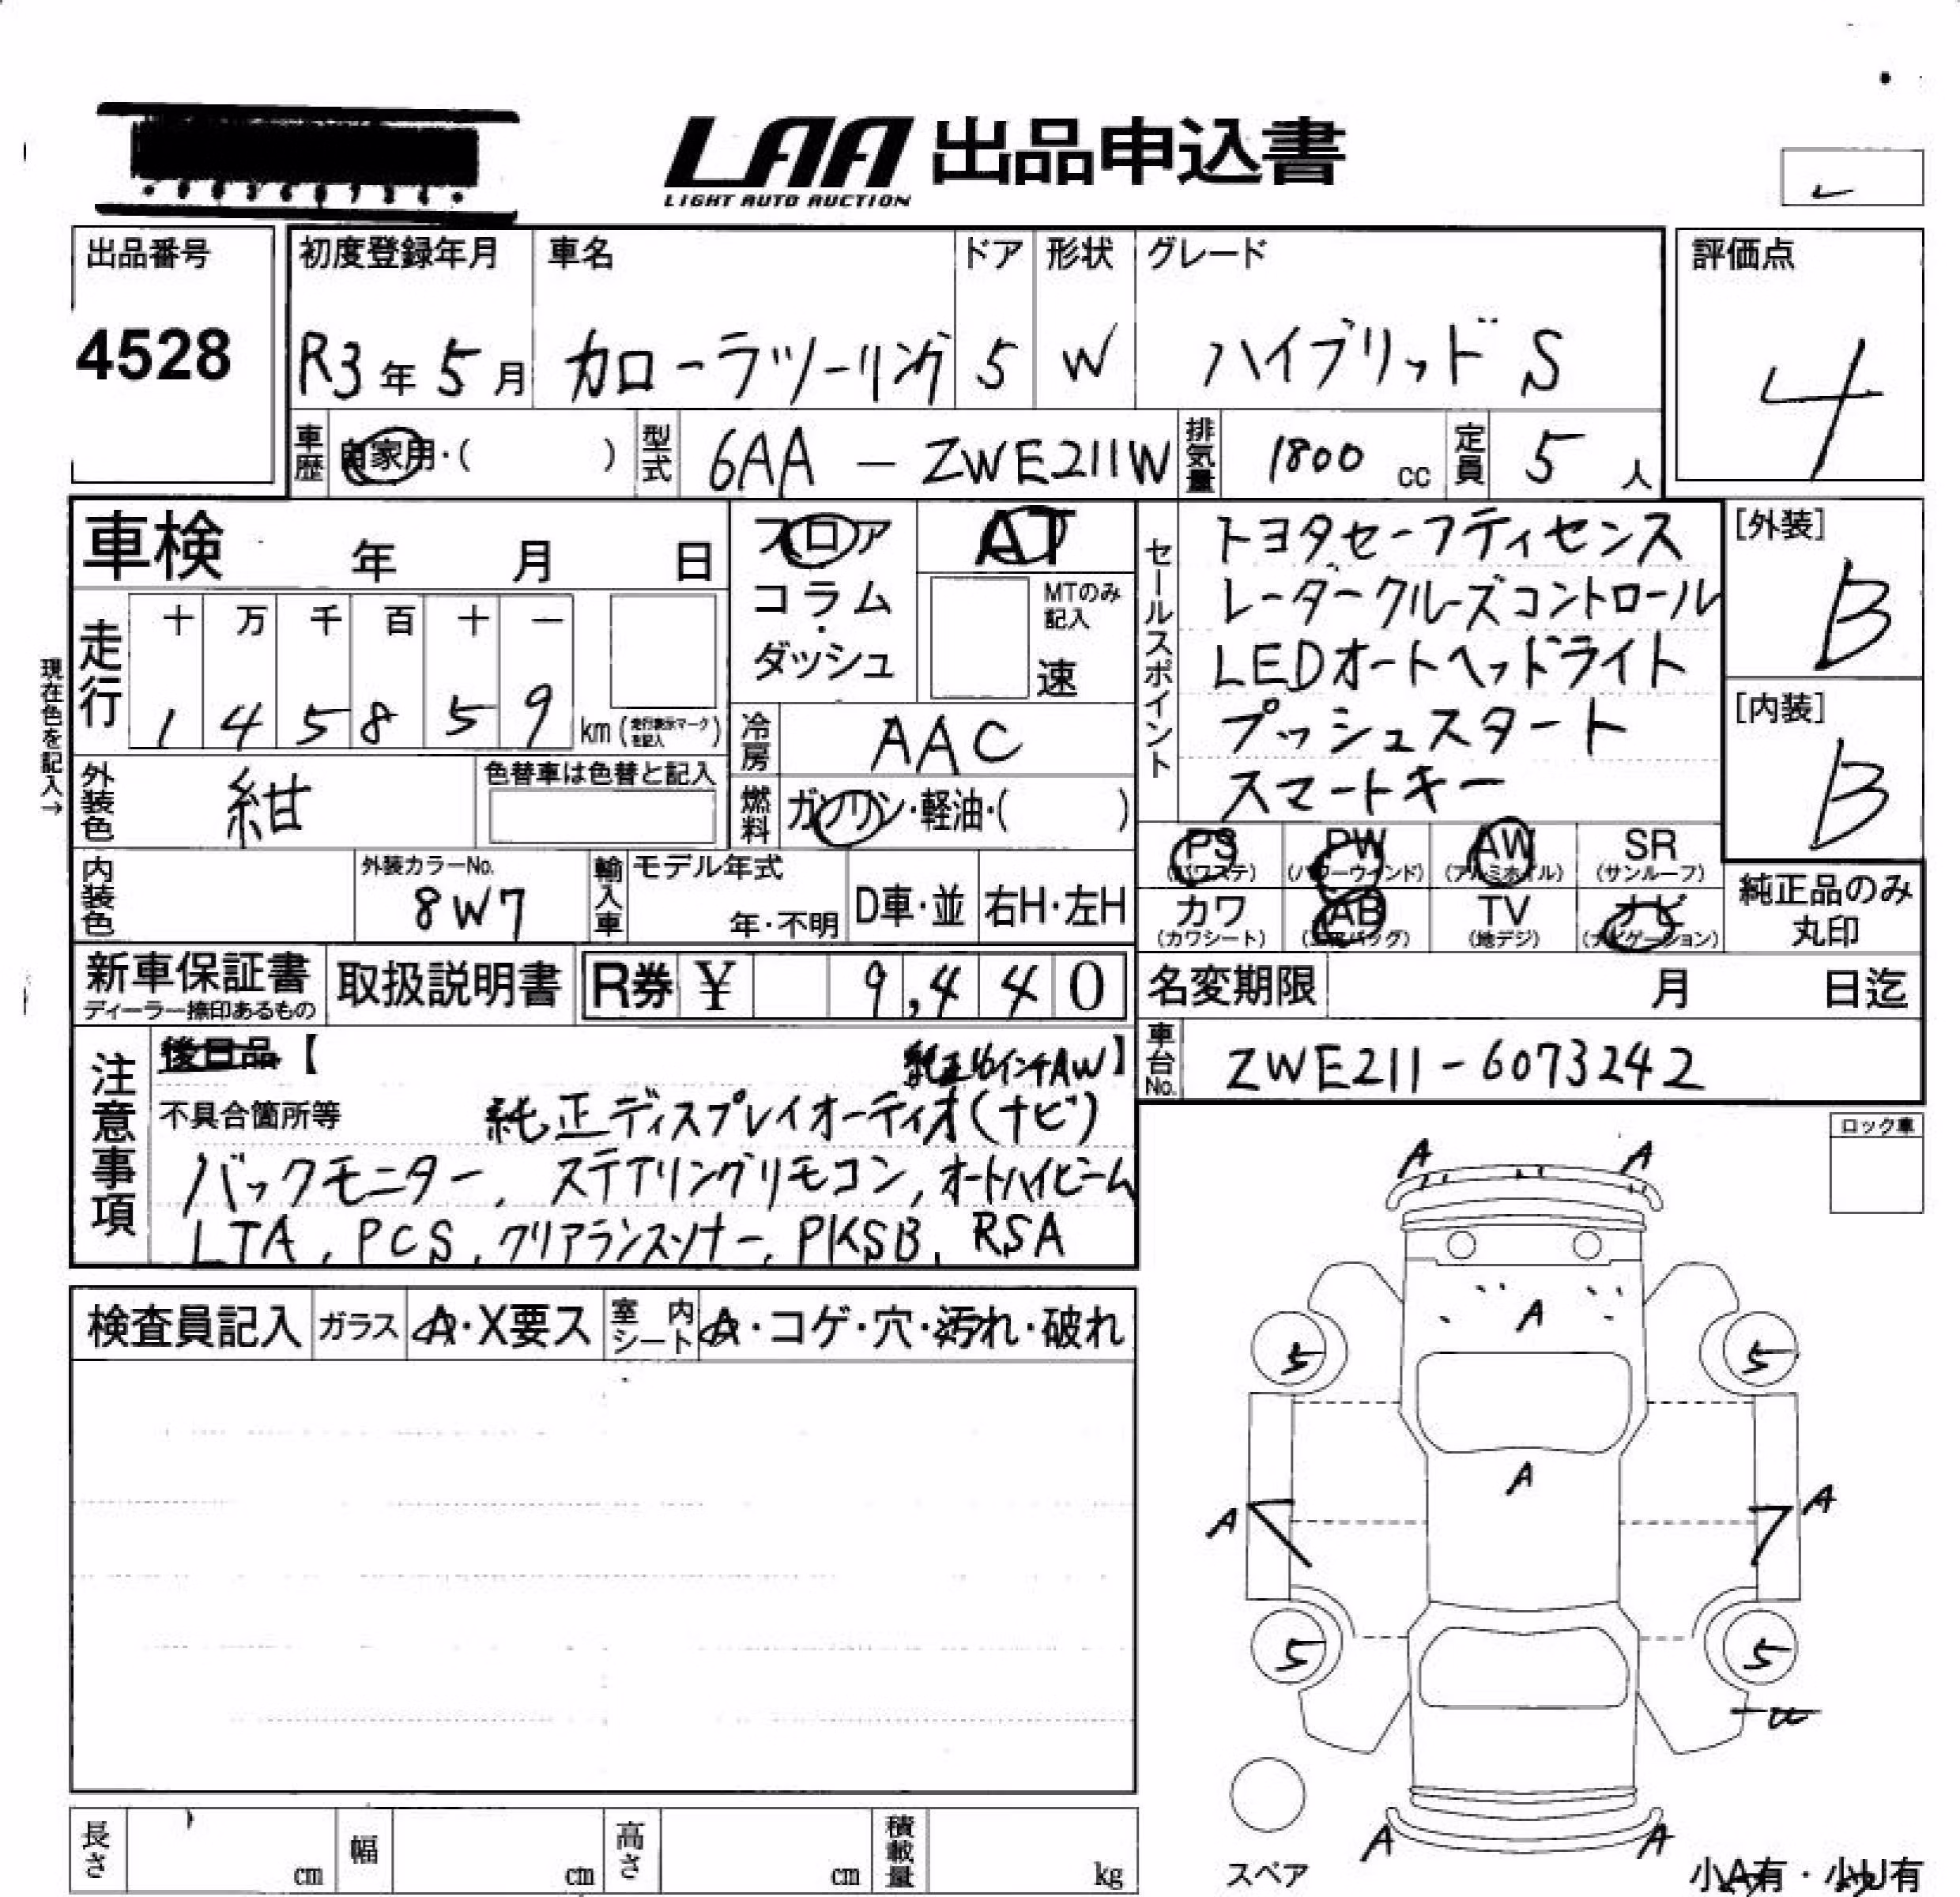 LAA 出品申込書
LIGHT AUTO AUCTION
出品番号
4528
初度登録年月
R3年5月
車名
カローラツーリング
ドア
5
形状
W
グレード
ハイブリッド S
評価点
4
車歴
自家用・( )
型式
6AA - ZWE211W
排気量
1800 cc
定員
5 人
車検 年 月 日
フロア
コラム
・
ダッシュ
AT
MTのみ
記入
速
セールスポイント
トヨタセーフティセンス
レーダークルーズコントロール
LEDオートヘッドライト
プッシュスタート
スマートキー
[外装]
B
[内装]
B
現在色を記入→
走行
十 万 千 百 十 一
1 4 5 8 5 9 km (走行表示マークを記入)
冷房
AAC
外装色
紺
色替車は色替と記入
燃料
ガソリン・軽油・( )
PS
(パワステ)
PW
(パワーウインド)
AW
(アルミホイル)
SR
(サンルーフ)
カワ
(カワシート)
AB
(エアバッグ)
TV
(地デジ)
ナビ
(ナビゲーション)
純正品のみ
丸印
内装色
外装カラーNo.
8W7
輸入車
モデル年式
年・不明
D車・並
右H・左H
新車保証書
ディーラー捺印あるもの
取扱説明書
R券 ¥ 9,440
名変期限 月 日迄
車台No.
ZWE211-6073242
注意事項
後日品【 純正16インチAW】
不具合箇所等 純正ディスプレイオーディオ(ナビ)
バックモニター, ステアリングリモコン, オートハイビーム
LTA, PCS, クリアランスソナー, PKSB, RSA
ロック車
検査員記入
ガラス
A・X要ス
室内シート
A・コゲ・穴・汚れ・破れ
A A
A
5 5
A
A A
5 5
A A
スペア
小A有・小U有
長さ cm
幅 cm
高さ cm
積載量 kg